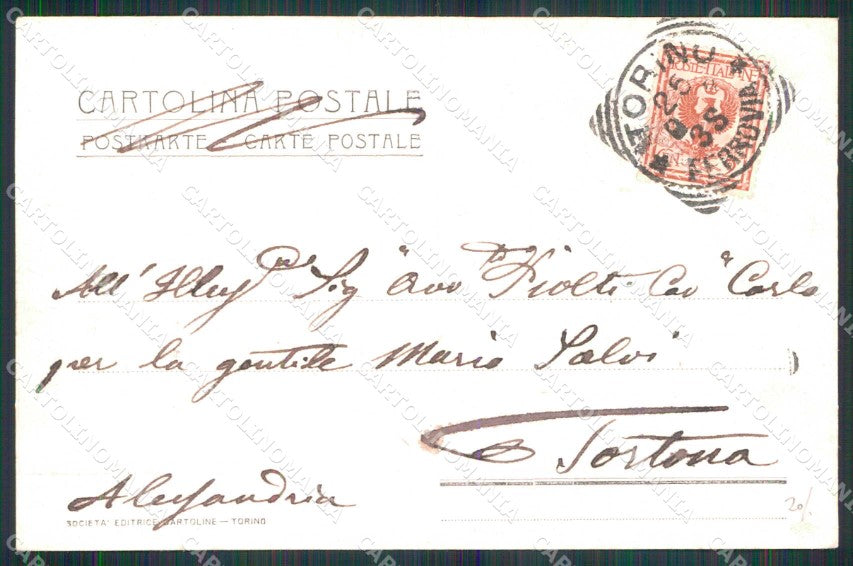 CARTOLINA POSTALE
POSTKARTE CARTE POSTALE
TORINO
FERROVIA
POSTE ITALIANE
All' Illus Sig Avv Violti Cav Carlo
per la gentile Maria Salvi
Tortona
Alessandria
SOCIETA' EDITRICE CARTOLINE — TORINO
20/
CARTOLINOMANIA